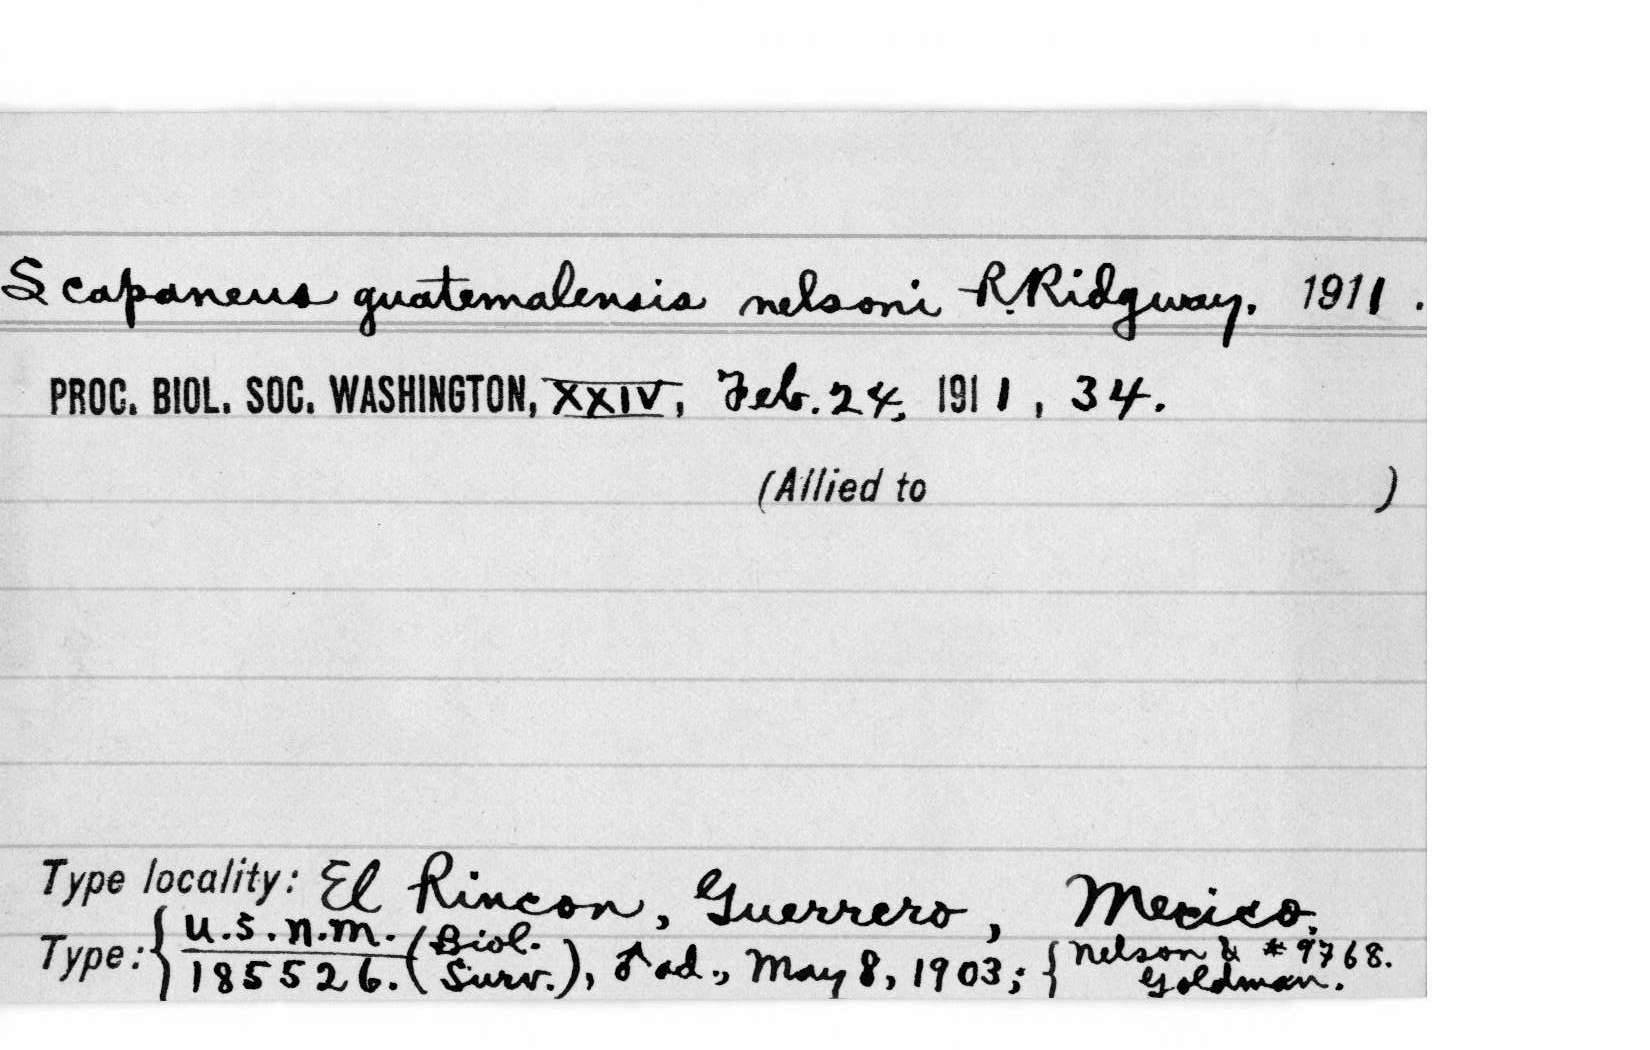 Scapaneus guatemalensis nelsoni R. Ridgway, 1911.
PROC. BIOL. SOC. WASHINGTON, XXIV, Feb. 24, 1911, 34.
(Allied to )
Type locality: El Rincon, Guerrero, Mexico,
Type: { U.S.N.M. (Biol. { Nelson & #9768.
185526. Surv.), ♂ ad., May 8, 1903; Goldman.